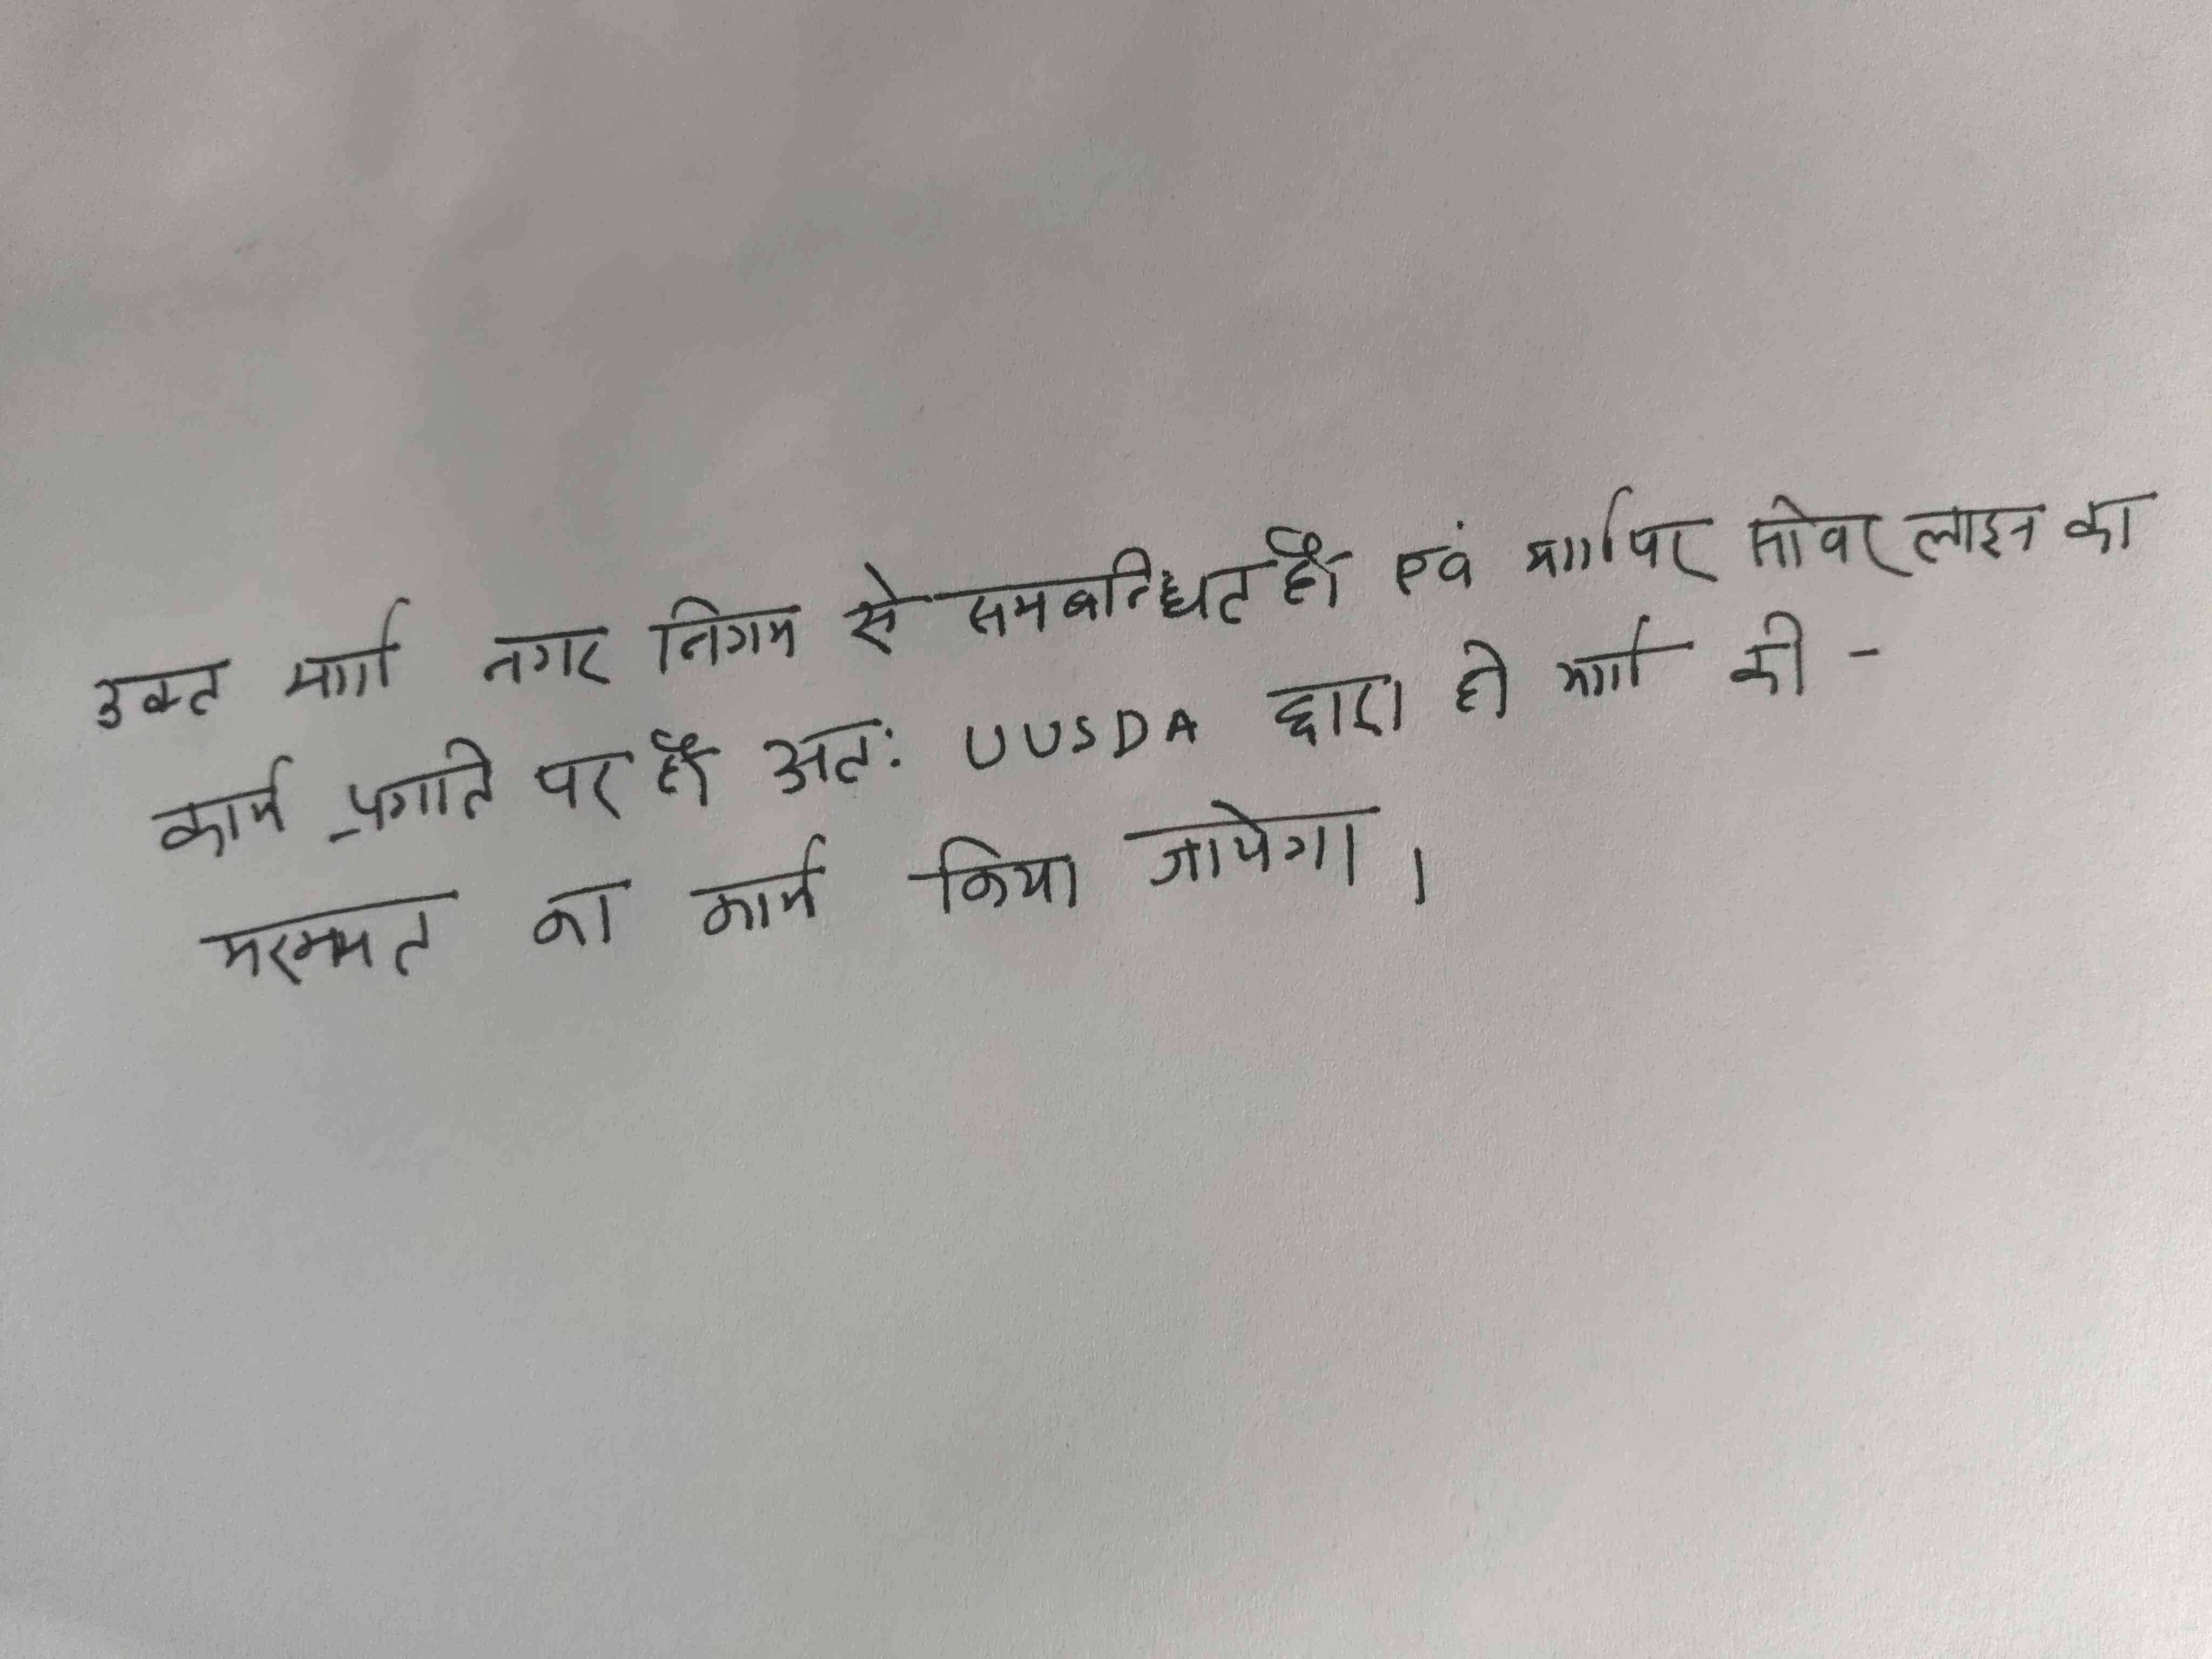 उक्त मार्ग नगर निगम से समबन्धित है एवं मार्ग पर सीवर लाइन का
कार्य प्रगति पर है अतः UUSDA द्वारा ही मार्ग की -
मरम्मत का कार्य किया जायेगा।